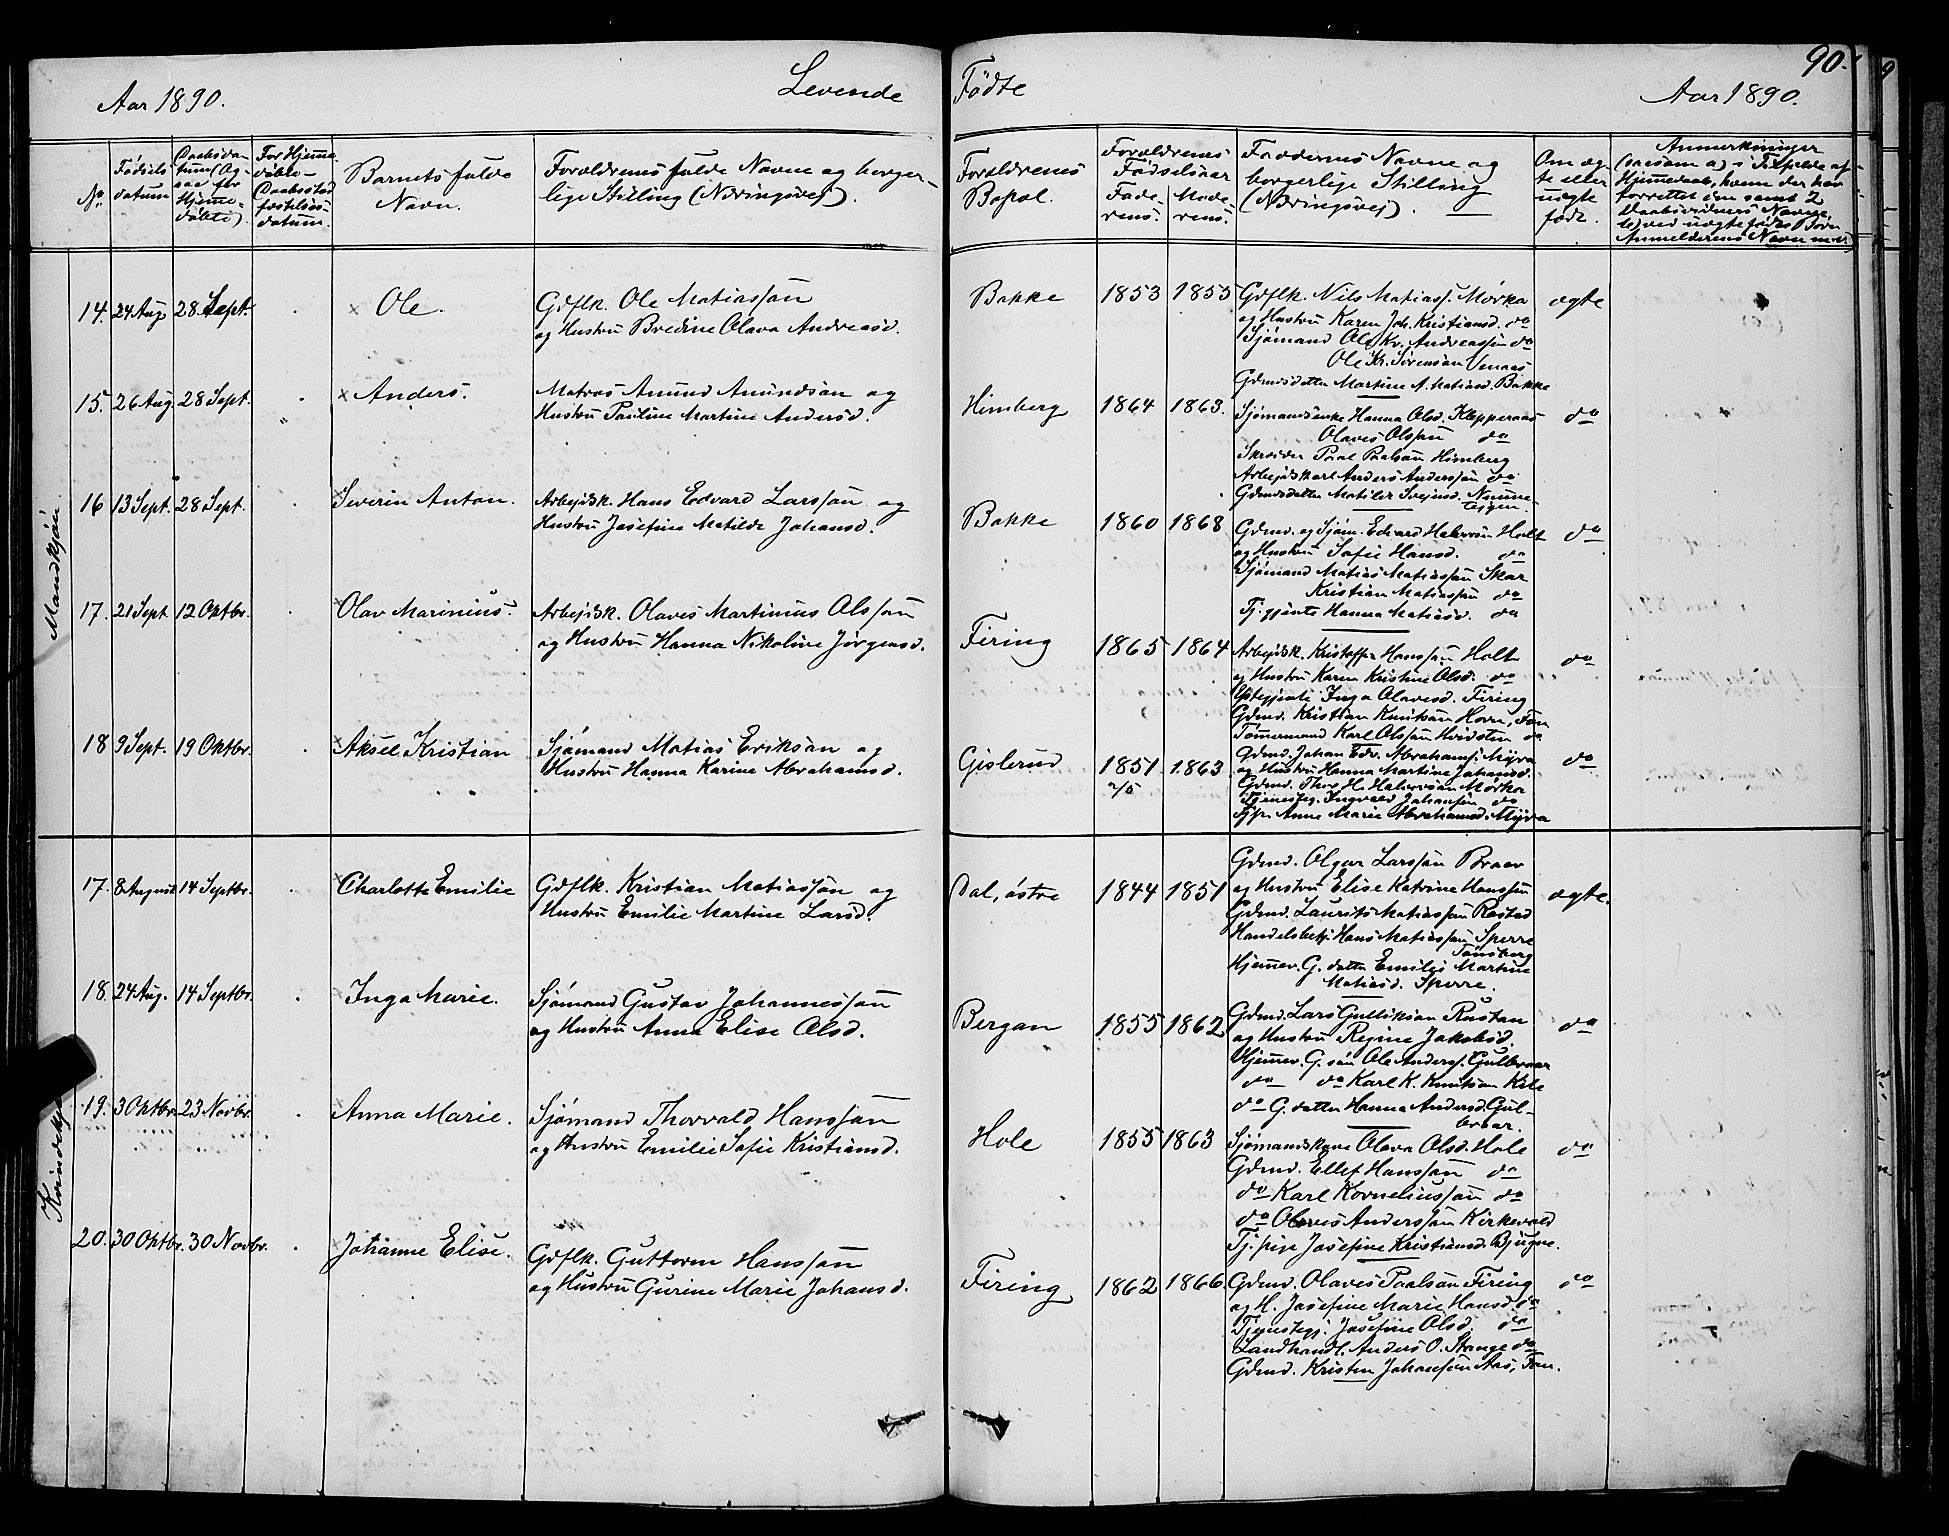 90.
Aar 1890.
Levende
Födte
Aar 1890.
No
Fødsels
datum
Daabsda-
tum (Og-
saa for
Hjemme-
døbte).
For Hjemme-
døbte
Daabsstad-
fæstelses-
datum.
Barnets fulde
Navn.
Forældrenes fulde Navne og borger-
lige Stilling (Næringsvej).
Forældrenes
Bopæl.
Forældrenes
Fødselsaar
Fade-
rens.
Mode-
rens.
Faddernes Navne og
borgerlige Stilling
(Næringsvej).
Om æg-
te eller
uægte
født.
Anmerkninger
(saasom a) i Tilfælde af
Hjemmedaab, hvem der har
forrettet den samt 2
Daabsvidners Navne,
b) ved uægte fødte Børn
Anmelderens Navn m.v.)
Mandkjön
14. 24 Aug. 28. Sept. Ole.
Gdflk. Ole Matiassön
og Hustru Bredine Olava Andreasd.
Bakke 1853 1855
Gdflk. Nils Matiass. Mørka
og Hustru Karen Joh. Kristiansd. do
Sjømand Ole Kr. Andreassön do
Ole Kr. Sørensön Venaas
Gdmdsdatter Martine A. Matiasd. Bakke
ægte
15. 26 Aug. 28 Sept. Anders.
Matros Amund Amundsön og
Hustru Pauline Martine Andersd.
Himberg 1864 1863.
Sjømandsenke Hanna Olsd. Klepperaas
Olaves Olssön do
Skrædder Paal Paalsön Himberg
Arbejdskarl Anders Anderssön do
Gdmdsdatter Matilde Svejnsd. Numme-
tejgen.
do
16 13 Sept. 28 Sept. Severin Anton.
Arbejdsk. Hans Edvard Larssön og
Hustru Josefine Matilde Johansd.
Bakke 1860 1868
Gdmd. og Sjøm. Edvard Halvorsön Holt
og Hustru Sofie Hansd. do
Sjømand Matias Matiassön Skar
Kristian Matiassön do
Tj. gjente Hanna Matiasd. do
do
17. 21 Sept 12 Oktbr. Olav Marinius.
Arbejdsk. Olaves Martinius Olssön
og Hustru Hanna Nikoline Jørgensd.
Firing 1865 1864
Arbejdsk. Kristoffer Hanssön Holt
og Hustru Karen Kristine Olsd. do
Inga Olavesd. Firing
Gdmd. Kristian Knutsön Horn, Fon
Tømmermand Karl Olssön Hvidsten do
do
18 9 Sept. 19 Oktbr. Aksel Kristian
Sjømand Matias Eriksön og
Hustru Hanna Karine Abrahamsd.
Gislerud 1851 1863
Gdmd. Johan Edv. Abrahams. Myra
og Hustru Hanna Martine Johansd.
Gdmd. Thor H. Halvorsön Mørka
Tjenesteg. Ingvald Johansön do
Tjp. Anne Marie Abrahamsd. Myra
do
Kvindekjön
17. 8 August 14 Septbr. Charlotte Emilie
Gdflk. Kristian Matiassön og
Hustru Emilie Martine Larsd.
Dal, østre 1844 1851
Gdmd. Olgar Larssön Braav
og Hustru Elise Katrine Hanssön
Gdmd. Laurits Matiassön Rastad
Handelsbetj. Hans Matiassön Sperre
Tønsberg
Hjemev. G. datter Emilie Martine
Matiasd. Sperre.
ægte.
18. 24 Aug. 14 Septbr. Inga Marie.
Sjømand Gustav Johannessön
og Hustru Anna Elise Olsd.
Bergan 1855 1862
Gdmd. Lars Gulliksön Rustan
og Hustru Regine Jakobsd.
Hjemmev. G. sön Ole Anders. Gulbraar
do do Karl K. Knutsön Kile
do G. datter Hanna Andersd. Gul-
braar.
do
19. 3 Oktbr. 23 Novbr. Anna Marie.
Sjømand Thorvald Hanssön
og Hustru Emilie Sofie Kristiansd.
Hole 1855 1863
Sjømandskone Olava Olsd. Hole
Gdmd. Ellef Hanssön do
do Karl Korneliussön do
do Olaves Anderssön Kirkevold
Tj. pige Josefine Kristiansd. Bjugne.
do
20. 30 Oktbr. 30 Novbr. Johanne Elise.
Gdflk. Guttorm Hanssön
og Hustru Gurine Marie Johansd.
Firing 1862 1866.
Gdmd. Olaves Paalsön Firing
og H. Josefine Marie Hansd. do
Tjenestegj. Josefine Olsd. do
Landhandl. Anders O. Stange do
Gdmd. Kristen Johansön Aas, Fon.
do